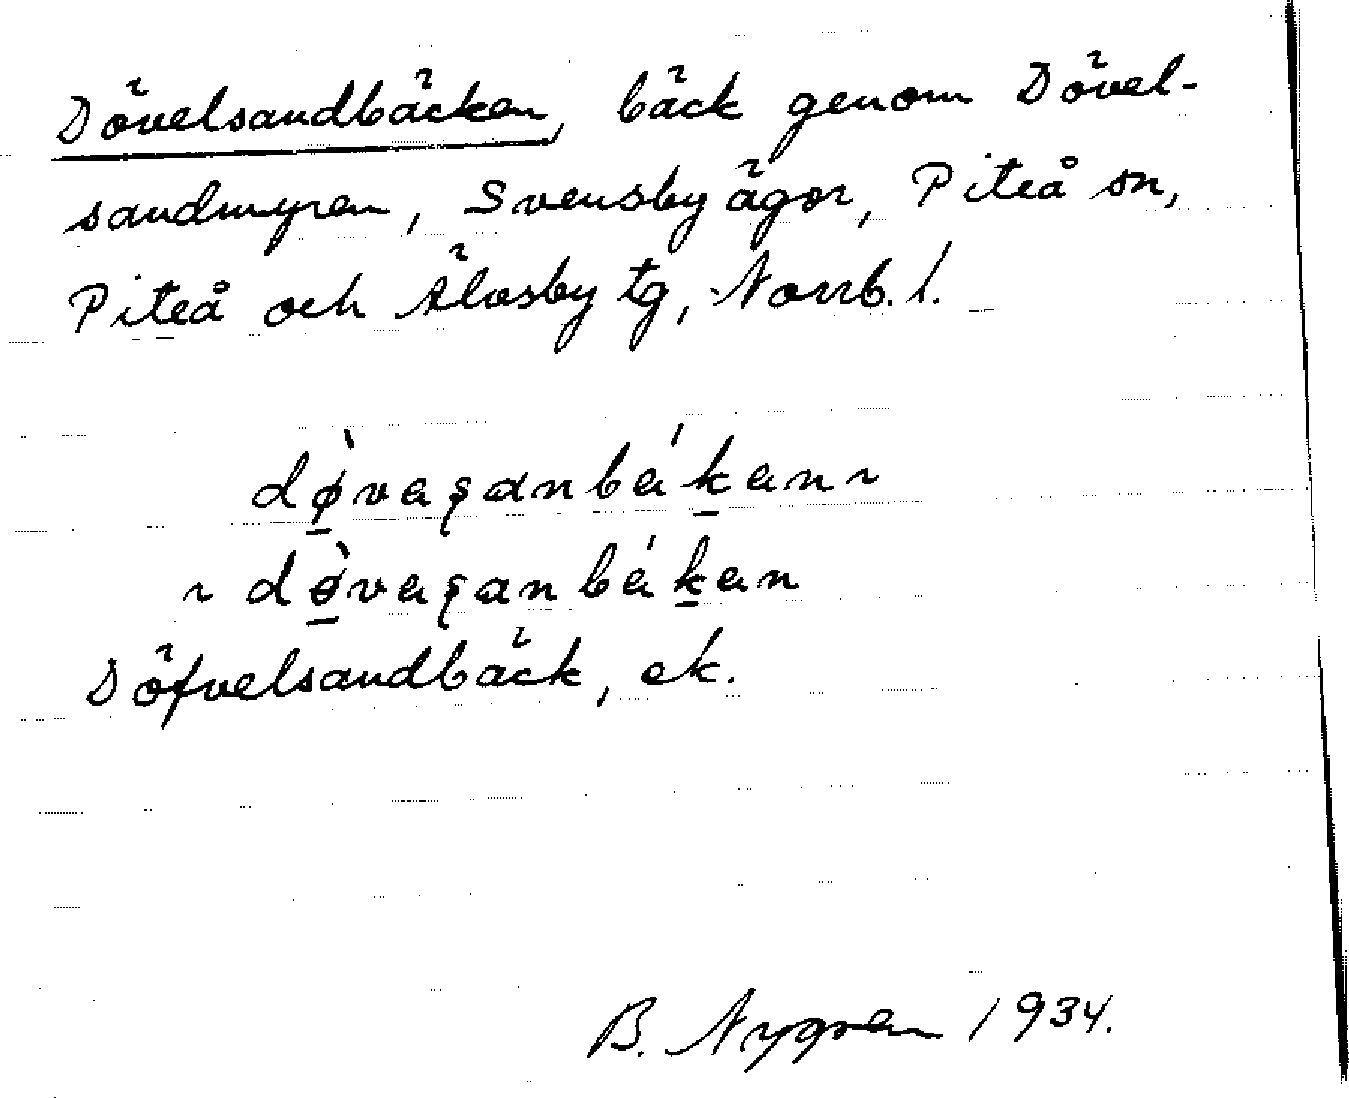 Dövelsandbäcken, bäck genom Dövel-
sandmyren, Svensby ägor, Piteå sn,
Piteå och Älvsby tg, Norrb. l.
dø̱̀vaʂɑnbáḵan ~
~ dɵ̱̀vaʂanbáḵan
Döfvelsandbäck, ek.
B. Nygren 1934.